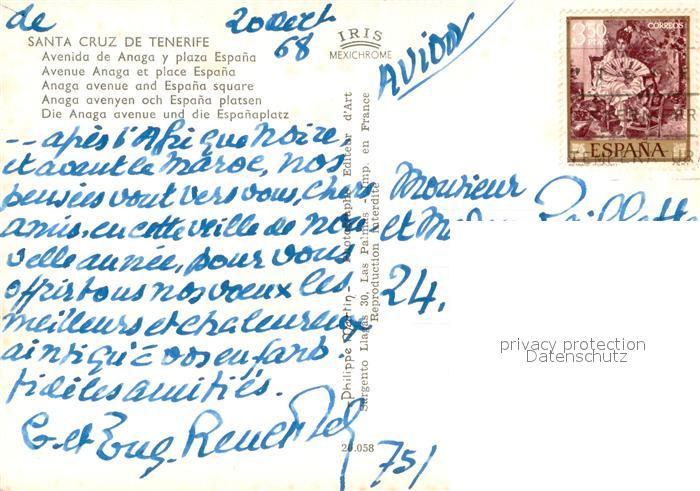 de
20 dec
68
SANTA CRUZ DE TENERIFE
Avenida de Anaga y plaza España
Avenue Anaga et place España
Anaga avenue and España square
Anaga avenyen och España platsen
Die Anaga avenue und die Españaplatz
IRIS
MEXICHROME
AVION
3,50
PTAS
CORREOS
ESPAÑA
-- après l'Afrique Noire,
et avant le Maroc, nos
pensées vont vers vous, chers
amis, en cette veille de nou
velle année, pour vous
offrir tous nos voeux les
meilleurs et chaleureux
ainsi qu'à vos enfants.
fidèles amitiés.
Philippe Martin - Photographe Editeur d'Art
Sargento Llagas 30, Las Palmas - Imp. en France
Reproduction interdite
20.058
Monsieur
et
24,
75/
privacy protection
Datenschutz